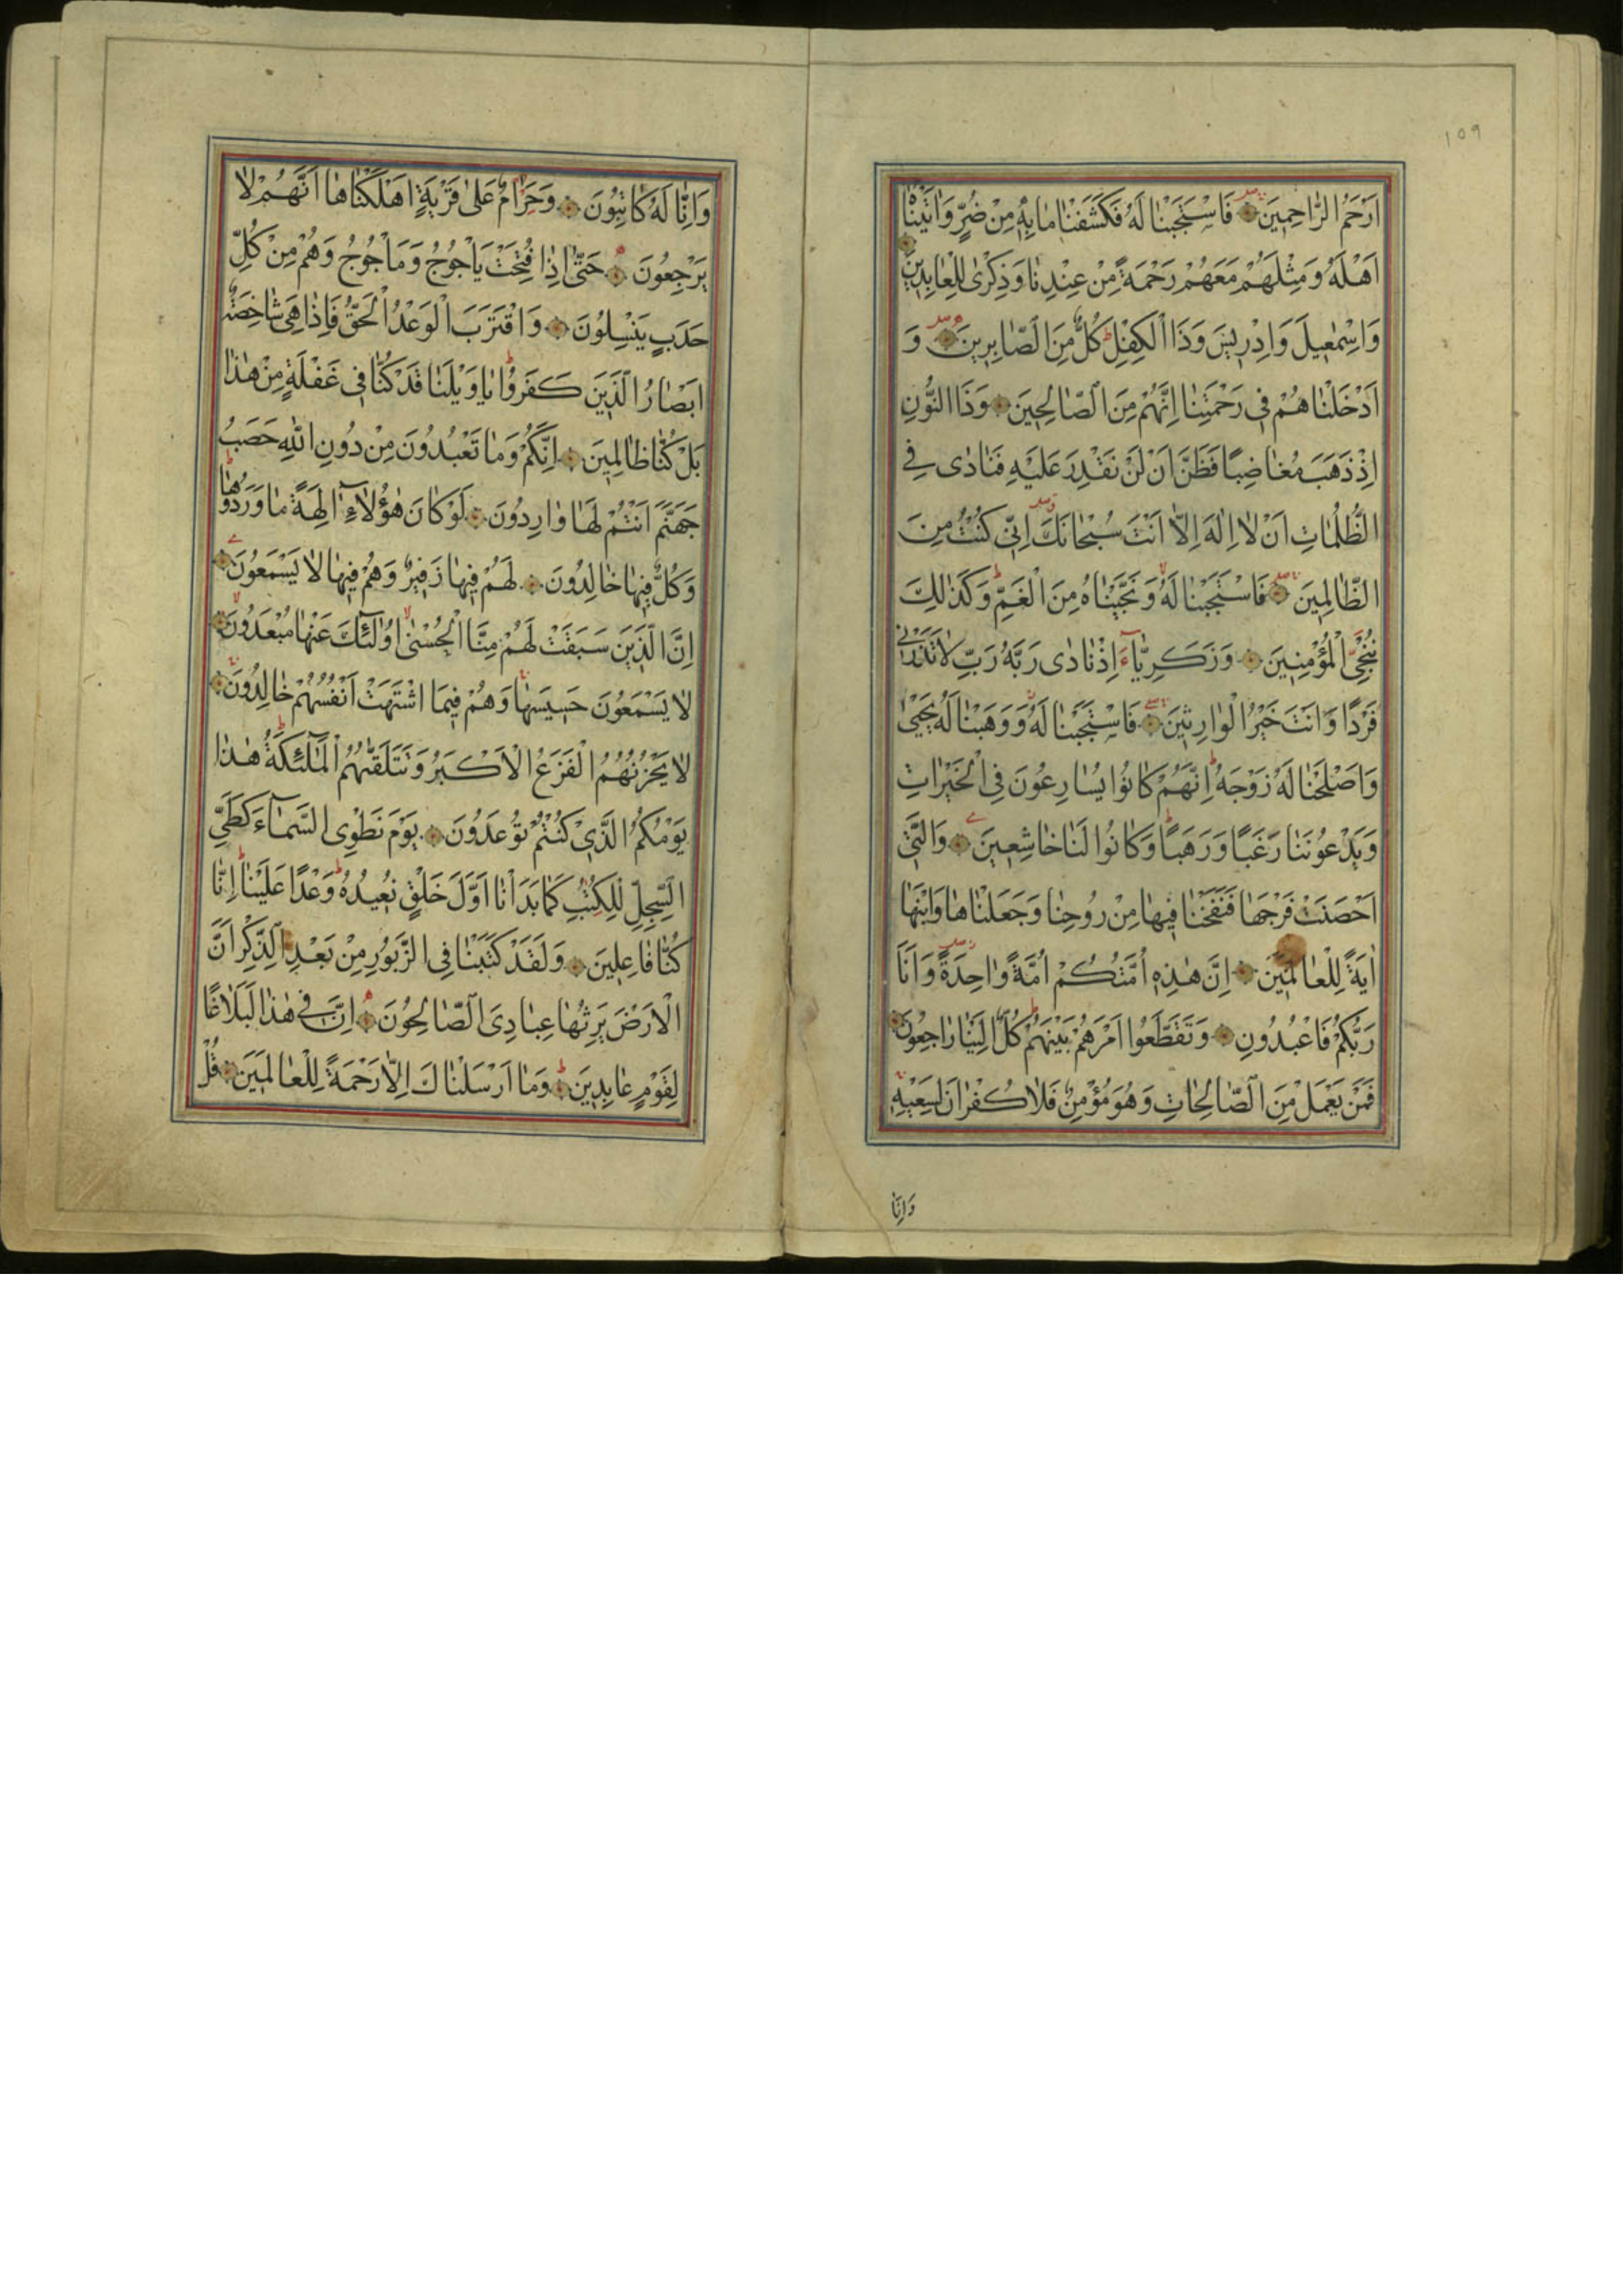 ١٥٩
اَرْحَمُ الرَّاحِمِينَ فَاسْتَجَبْنَا لَهُ فَكَشَفْنَا مَا بِهِ مِنْ ضُرٍّ وَاٰتَيْنَاهُ
اَهْلَهُ وَمِثْلَهُمْ مَعَهُمْ رَحْمَةً مِنْ عِنْدِنَا وَذِكْرٰى لِلْعَابِدِينَ
وَاِسْمٰعِيلَ وَاِدْرِيسَ وَذَا الْكِفْلِ كُلٌّ مِنَ الصَّابِرِينَ وَ
اَدْخَلْنَاهُمْ فِى رَحْمَتِنَا اِنَّهُمْ مِنَ الصَّالِحِينَ وَذَا النُّونِ
اِذْ ذَهَبَ مُغَاضِبًا فَظَنَّ اَنْ لَنْ نَقْدِرَ عَلَيْهِ فَنَادٰى فِى
الظُّلُمَاتِ اَنْ لَا اِلٰهَ اِلَّا اَنْتَ سُبْحَانَكَ اِنِّى كُنْتُ مِنَ
الظَّالِمِينَ فَاسْتَجَبْنَا لَهُ وَنَجَّيْنَاهُ مِنَ الْغَمِّ وَكَذٰلِكَ
نُنْجِى الْمُؤْمِنِينَ وَزَكَرِيَّآءَ اِذْ نَادٰى رَبَّهُ رَبِّ لَا تَذَرْنِى
فَرْدًا وَاَنْتَ خَيْرُ الْوَارِثِينَ فَاسْتَجَبْنَا لَهُ وَوَهَبْنَا لَهُ يَحْيٰى
وَاَصْلَحْنَا لَهُ زَوْجَهُ اِنَّهُمْ كَانُوا يُسَارِعُونَ فِى الْخَيْرَاتِ
وَيَدْعُونَنَا رَغَبًا وَرَهَبًا وَكَانُوا لَنَا خَاشِعِينَ وَالَّتِى
اَحْصَنَتْ فَرْجَهَا فَنَفَخْنَا فِيهَا مِنْ رُوحِنَا وَجَعَلْنَاهَا وَابْنَهَا
اٰيَةً لِلْعَالَمِينَ اِنَّ هٰذِهِ اُمَّتُكُمْ اُمَّةً وَاحِدَةً وَاَنَا
رَبُّكُمْ فَاعْبُدُونِ وَتَقَطَّعُوا اَمْرَهُمْ بَيْنَهُمْ كُلٌّ اِلَيْنَا رَاجِعُونَ
فَمَنْ يَعْمَلْ مِنَ الصَّالِحَاتِ وَهُوَ مُؤْمِنٌ فَلَا كُفْرَانَ لِسَعْيِهِ
وَاِنَّا
وَاِنَّا لَهُ كَاتِبُونَ وَحَرَامٌ عَلٰى قَرْيَةٍ اَهْلَكْنَاهَا اَنَّهُمْ لَا
يَرْجِعُونَ حَتّٰى اِذَا فُتِحَتْ يَاْجُوجُ وَمَاْجُوجُ وَهُمْ مِنْ كُلِّ
حَدَبٍ يَنْسِلُونَ وَاقْتَرَبَ الْوَعْدُ الْحَقُّ فَاِذَا هِىَ شَاخِصَةٌ
اَبْصَارُ الَّذِينَ كَفَرُوا يَا وَيْلَنَا قَدْ كُنَّا فِى غَفْلَةٍ مِنْ هٰذَا
بَلْ كُنَّا ظَالِمِينَ اِنَّكُمْ وَمَا تَعْبُدُونَ مِنْ دُونِ اللّٰهِ حَصَبُ
جَهَنَّمَ اَنْتُمْ لَهَا وَارِدُونَ لَوْ كَانَ هٰؤُلَآءِ اٰلِهَةً مَا وَرَدُوهَا
وَكُلٌّ فِيهَا خَالِدُونَ لَهُمْ فِيهَا زَفِيرٌ وَهُمْ فِيهَا لَا يَسْمَعُونَ
اِنَّ الَّذِينَ سَبَقَتْ لَهُمْ مِنَّا الْحُسْنٰى اُولٰٓئِكَ عَنْهَا مُبْعَدُونَ
لَا يَسْمَعُونَ حَسِيسَهَا وَهُمْ فِيمَا اشْتَهَتْ اَنْفُسُهُمْ خَالِدُونَ
لَا يَحْزُنُهُمُ الْفَزَعُ الْاَكْبَرُ وَتَتَلَقّٰيهُمُ الْمَلٰٓئِكَةُ هٰذَا
يَوْمُكُمُ الَّذِى كُنْتُمْ تُوعَدُونَ يَوْمَ نَطْوِى السَّمَآءَ كَطَىِّ
السِّجِلِّ لِلْكُتُبِ كَمَا بَدَاْنَا اَوَّلَ خَلْقٍ نُعِيدُهُ وَعْدًا عَلَيْنَا اِنَّا
كُنَّا فَاعِلِينَ وَلَقَدْ كَتَبْنَا فِى الزَّبُورِ مِنْ بَعْدِ الذِّكْرِ اَنَّ
الْاَرْضَ يَرِثُهَا عِبَادِىَ الصَّالِحُونَ اِنَّ فِى هٰذَا لَبَلَاغًا
لِقَوْمٍ عَابِدِينَ وَمَا اَرْسَلْنَاكَ اِلَّا رَحْمَةً لِلْعَالَمِينَ قُلْ